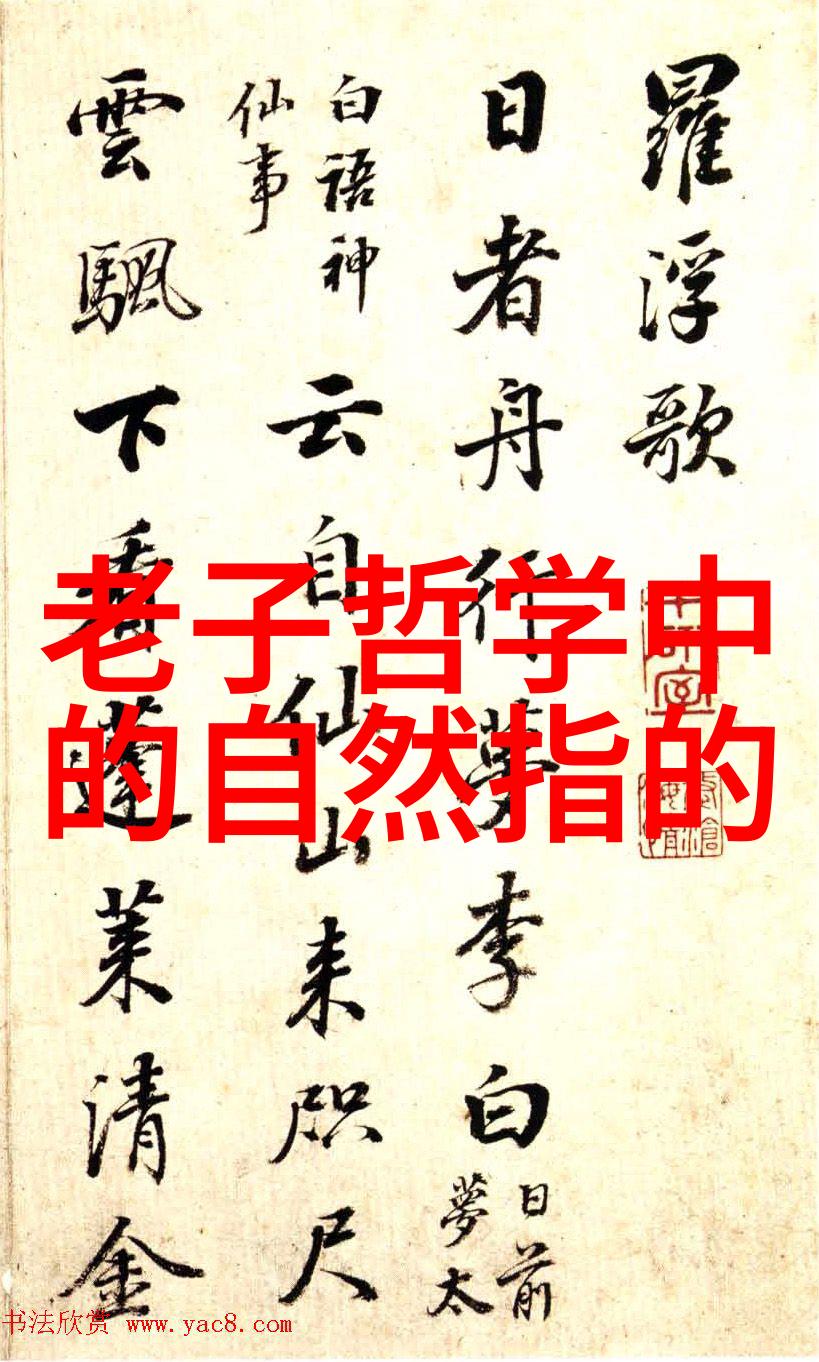 羅浮歌
日者舟行夢李白
日前
夢太
白語神
仙事
云自仙山来咫尺
雲颿下看蓬莱清金
老子哲学中
的自然指的
书法欣赏 www.yac8.com